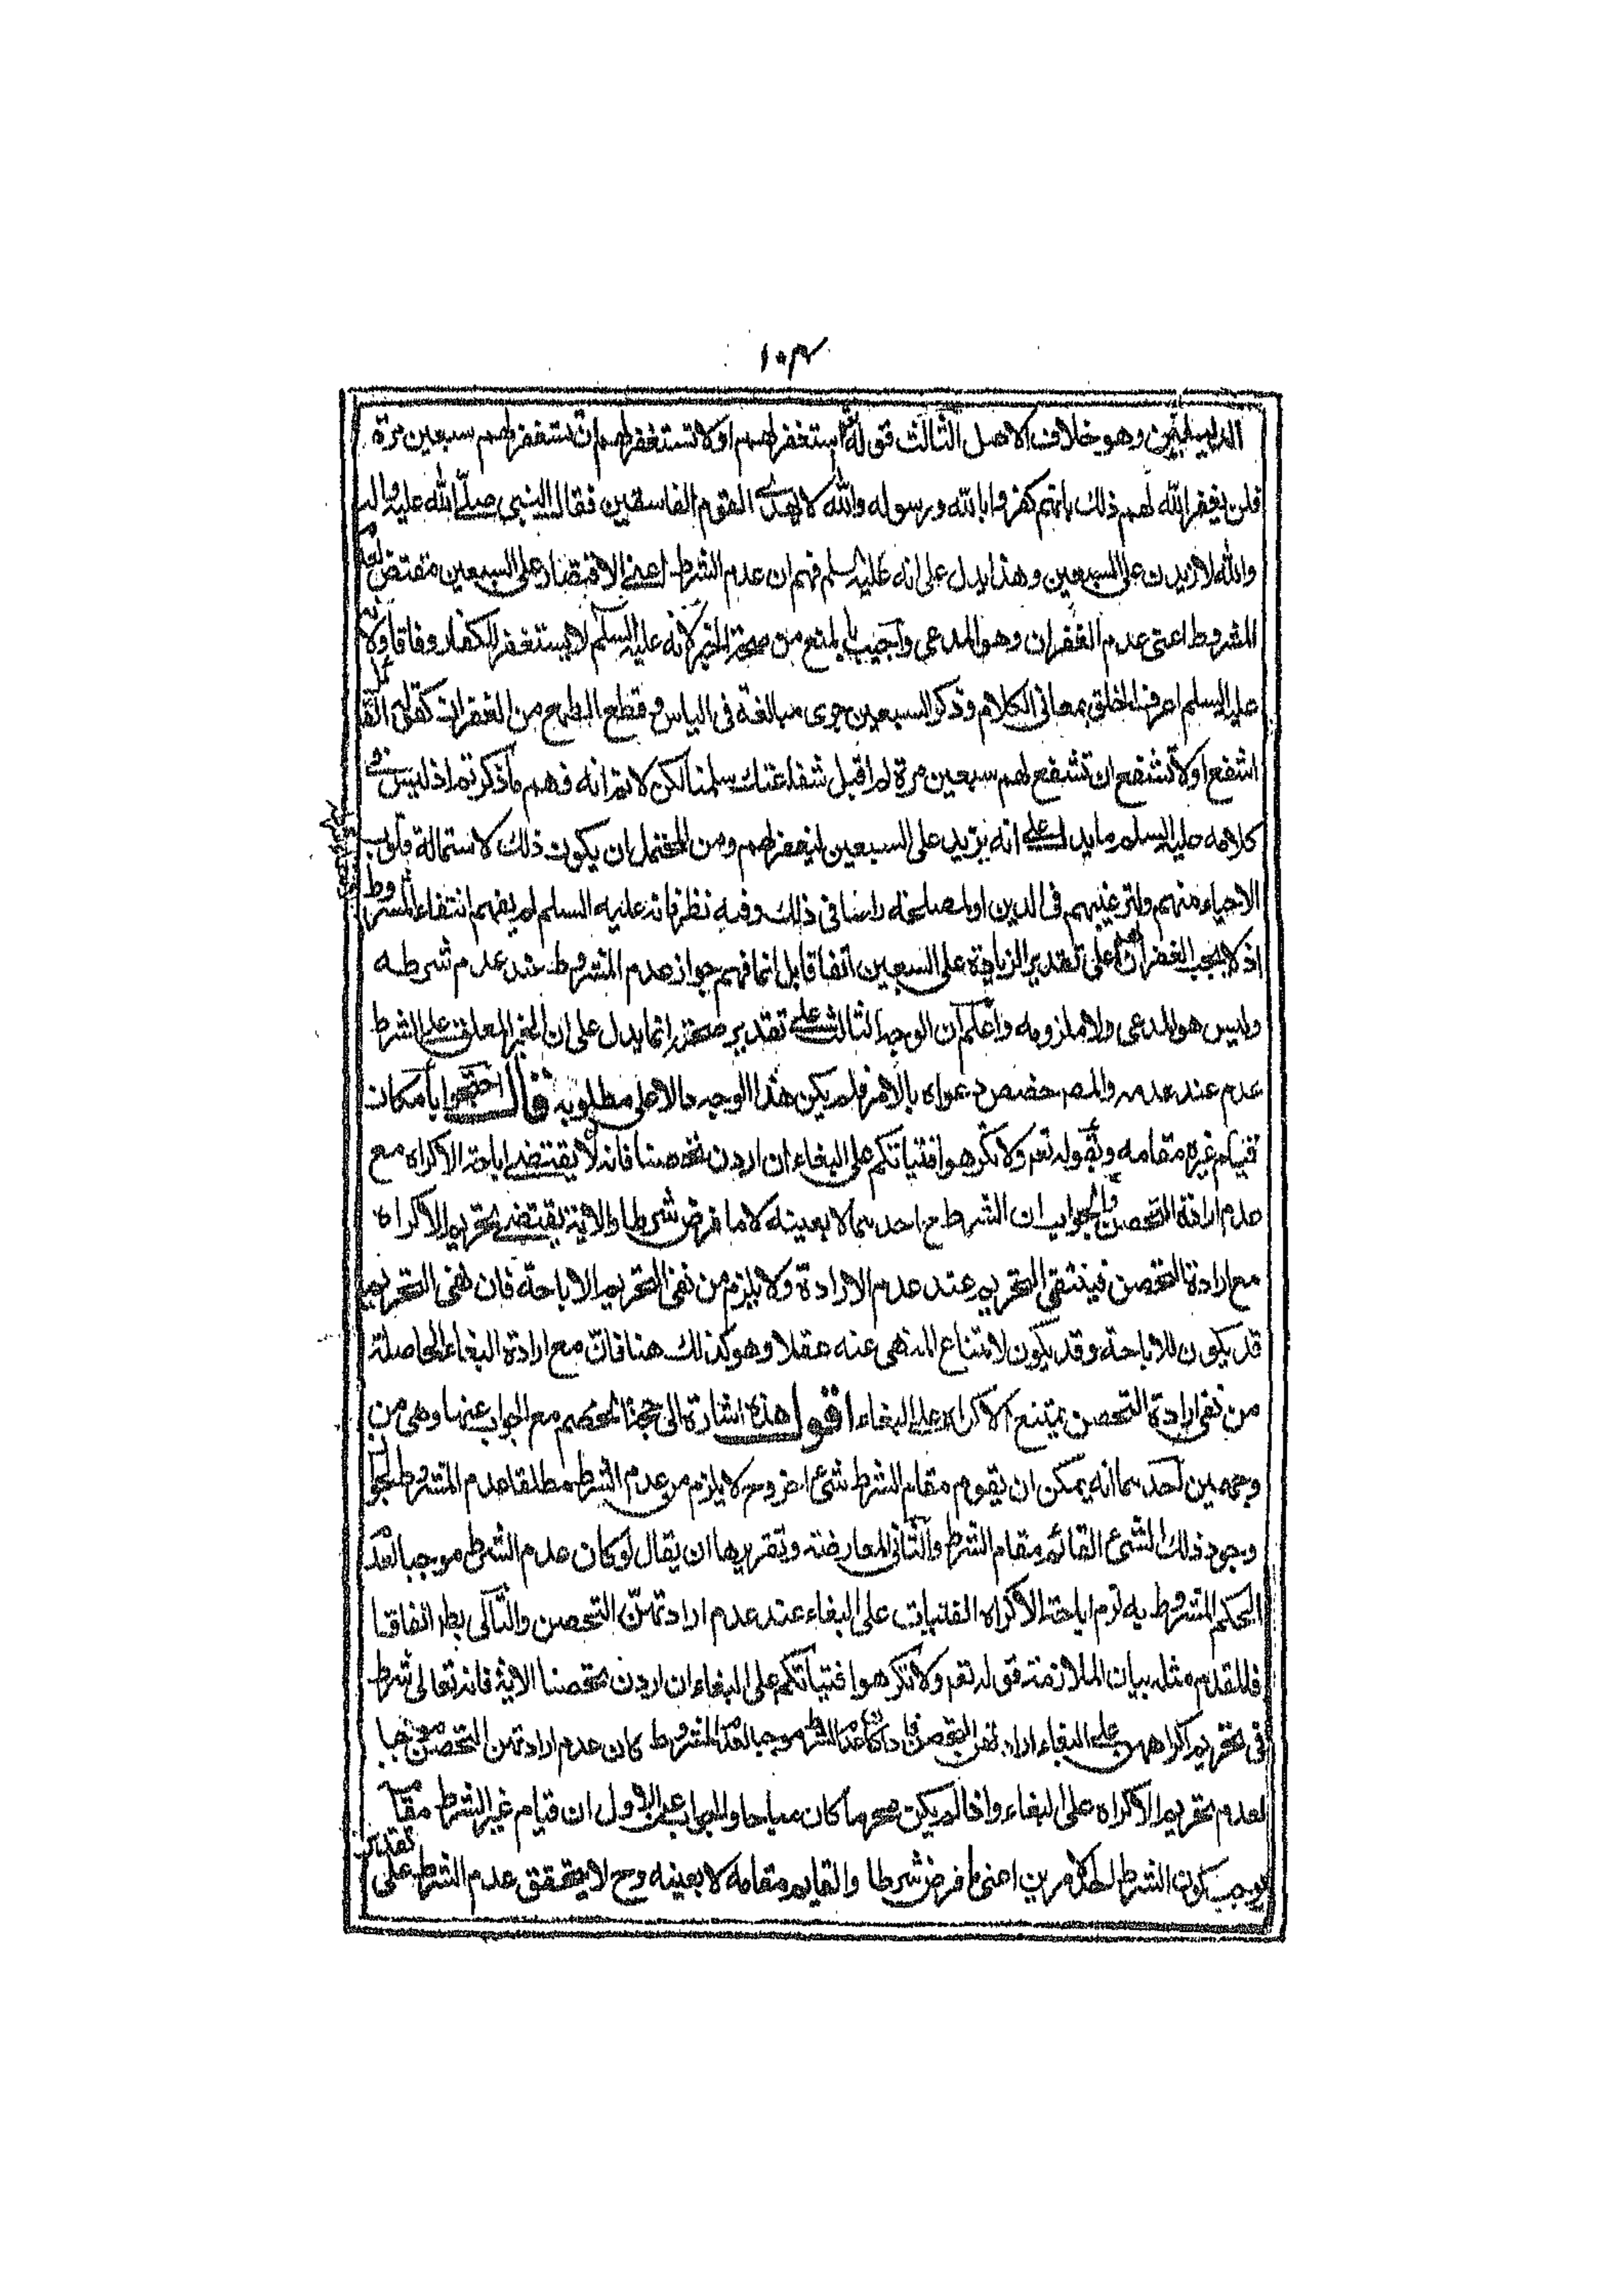 ١٠٣
وهو خلاف الاصل الثالث قوله استغفر لهم او لا تستغفر لهم ان تستغفر لهم سبعين مرة
فلن يغفر الله لهم ذلك بانهم كفروا بالله ورسوله والله لا يهدى القوم الفاسقين فقال النبى صلى الله عليه واله
والله لازيدن على السبعين وهذا يدل على انه عليه السلم فهم ان عدم الشرط اعنى الاقتصار على السبعين مقتض لعدم
المشروط اعنى عدم الغفران وهو المدعى واجيب بالمنع من صحة الخبر لانه عليه السلم لا يستغفر للكفار وفاقا ولانه
عليه السلم اعرف الخلق بمعانى الكلام وذكر السبعين جرى مبالغة فى الياس وقطع الطمع من الغفران كقول القائل
اشفع او لا تشفع ان تشفع لهم سبعين مرة لم اقبل شفاعتك سلمنا لكن لا نم انه فهم ما ذكرتم اذ ليس فى
كلامه عليه السلم ما يدل على انه يزيد على السبعين ليغفر لهم ومن المحتمل ان يكون ذلك لاستمالة قلوب
الاحياء منهم ولترغيبهم فى الدين او لمصلحة راها فى ذلك وفيه نظر فانه عليه السلم لم يفهم انتفاء المشروط
اذ لا يجب الغفران على تقدير الزيادة على السبعين اتفاقا بل انما فهم جواز عدم المشروط عند عدم شرطه
وليس هو المدعى ولا ملزومه واعلم ان الوجه الثالث على تقدير صحته انما يدل على ان الخبر المعلق على الشرط
عدم عند عدمه والمص خصص دعواه بالامر فلم يكن هذا الوجه دالا على مطلوبه قال احتجوا بامكان
قيام غيره مقامه وبقوله تعم ولا تكرهوا فتياتكم على البغاء ان اردن تحصنا فانه لا يقتضى اباحة الاكراه مع
عدم ارادة التحصن والجواب ان الشرط ح احدهما لا بعينه لا ما فرض شرطا والاية يقتضى تحريم الاكراه
مع ارادة التحصن فينتفى التحريم عند عدم الارادة ولا يلزم من نفى التحريم الاباحة فان نفى التحريم
قد يكون للاباحة وقد يكون لامتناع المنهى عنه عقلا وهو كذلك هنا فان مع ارادة البغاء الحاصلة
من نفى ارادة التحصن يمتنع الاكراه على البغاء اقول هذه اشارة الى حجة الخصم مع الجواب عنها وهى من
وجهين احدهما انه يمكن ان يقوم مقام الشرط شئ اخر وح لا يلزم من عدم الشرط مطلقا عدم المشروط لجواز
وجود ذلك الشئ القائم مقام الشرط والثانى المعارضة وتقريرها ان يقال لو كان عدم الشرط موجبا لعدم
الحكم المشروط به لزم اباحة الاكراه الفتيات على البغاء عند عدم ارادتهن التحصن والتالى بط اتفاقا
فالمقدم مثله بيان الملازمة قوله تعم ولا تكرهوا فتياتكم على البغاء ان اردن تحصنا الاية فانه تعالى شرط
فى تحريم اكراههن على البغاء ارادتهن التحصن فاذا كان عدم الشرط موجبا لعدم المشروط كان عدم ارادتهن التحصن موجبا
لعدم تحريم الاكراه على البغاء واذا لم يكن محرما كان مباحا والجواب عن الاول ان قيام غير الشرط مقامه
يوجب كون الشرط احد الامرين اعنى ما فرض شرطا والقايم مقامه لا بعينه وح لا يتحقق عدم الشرط على تقدير